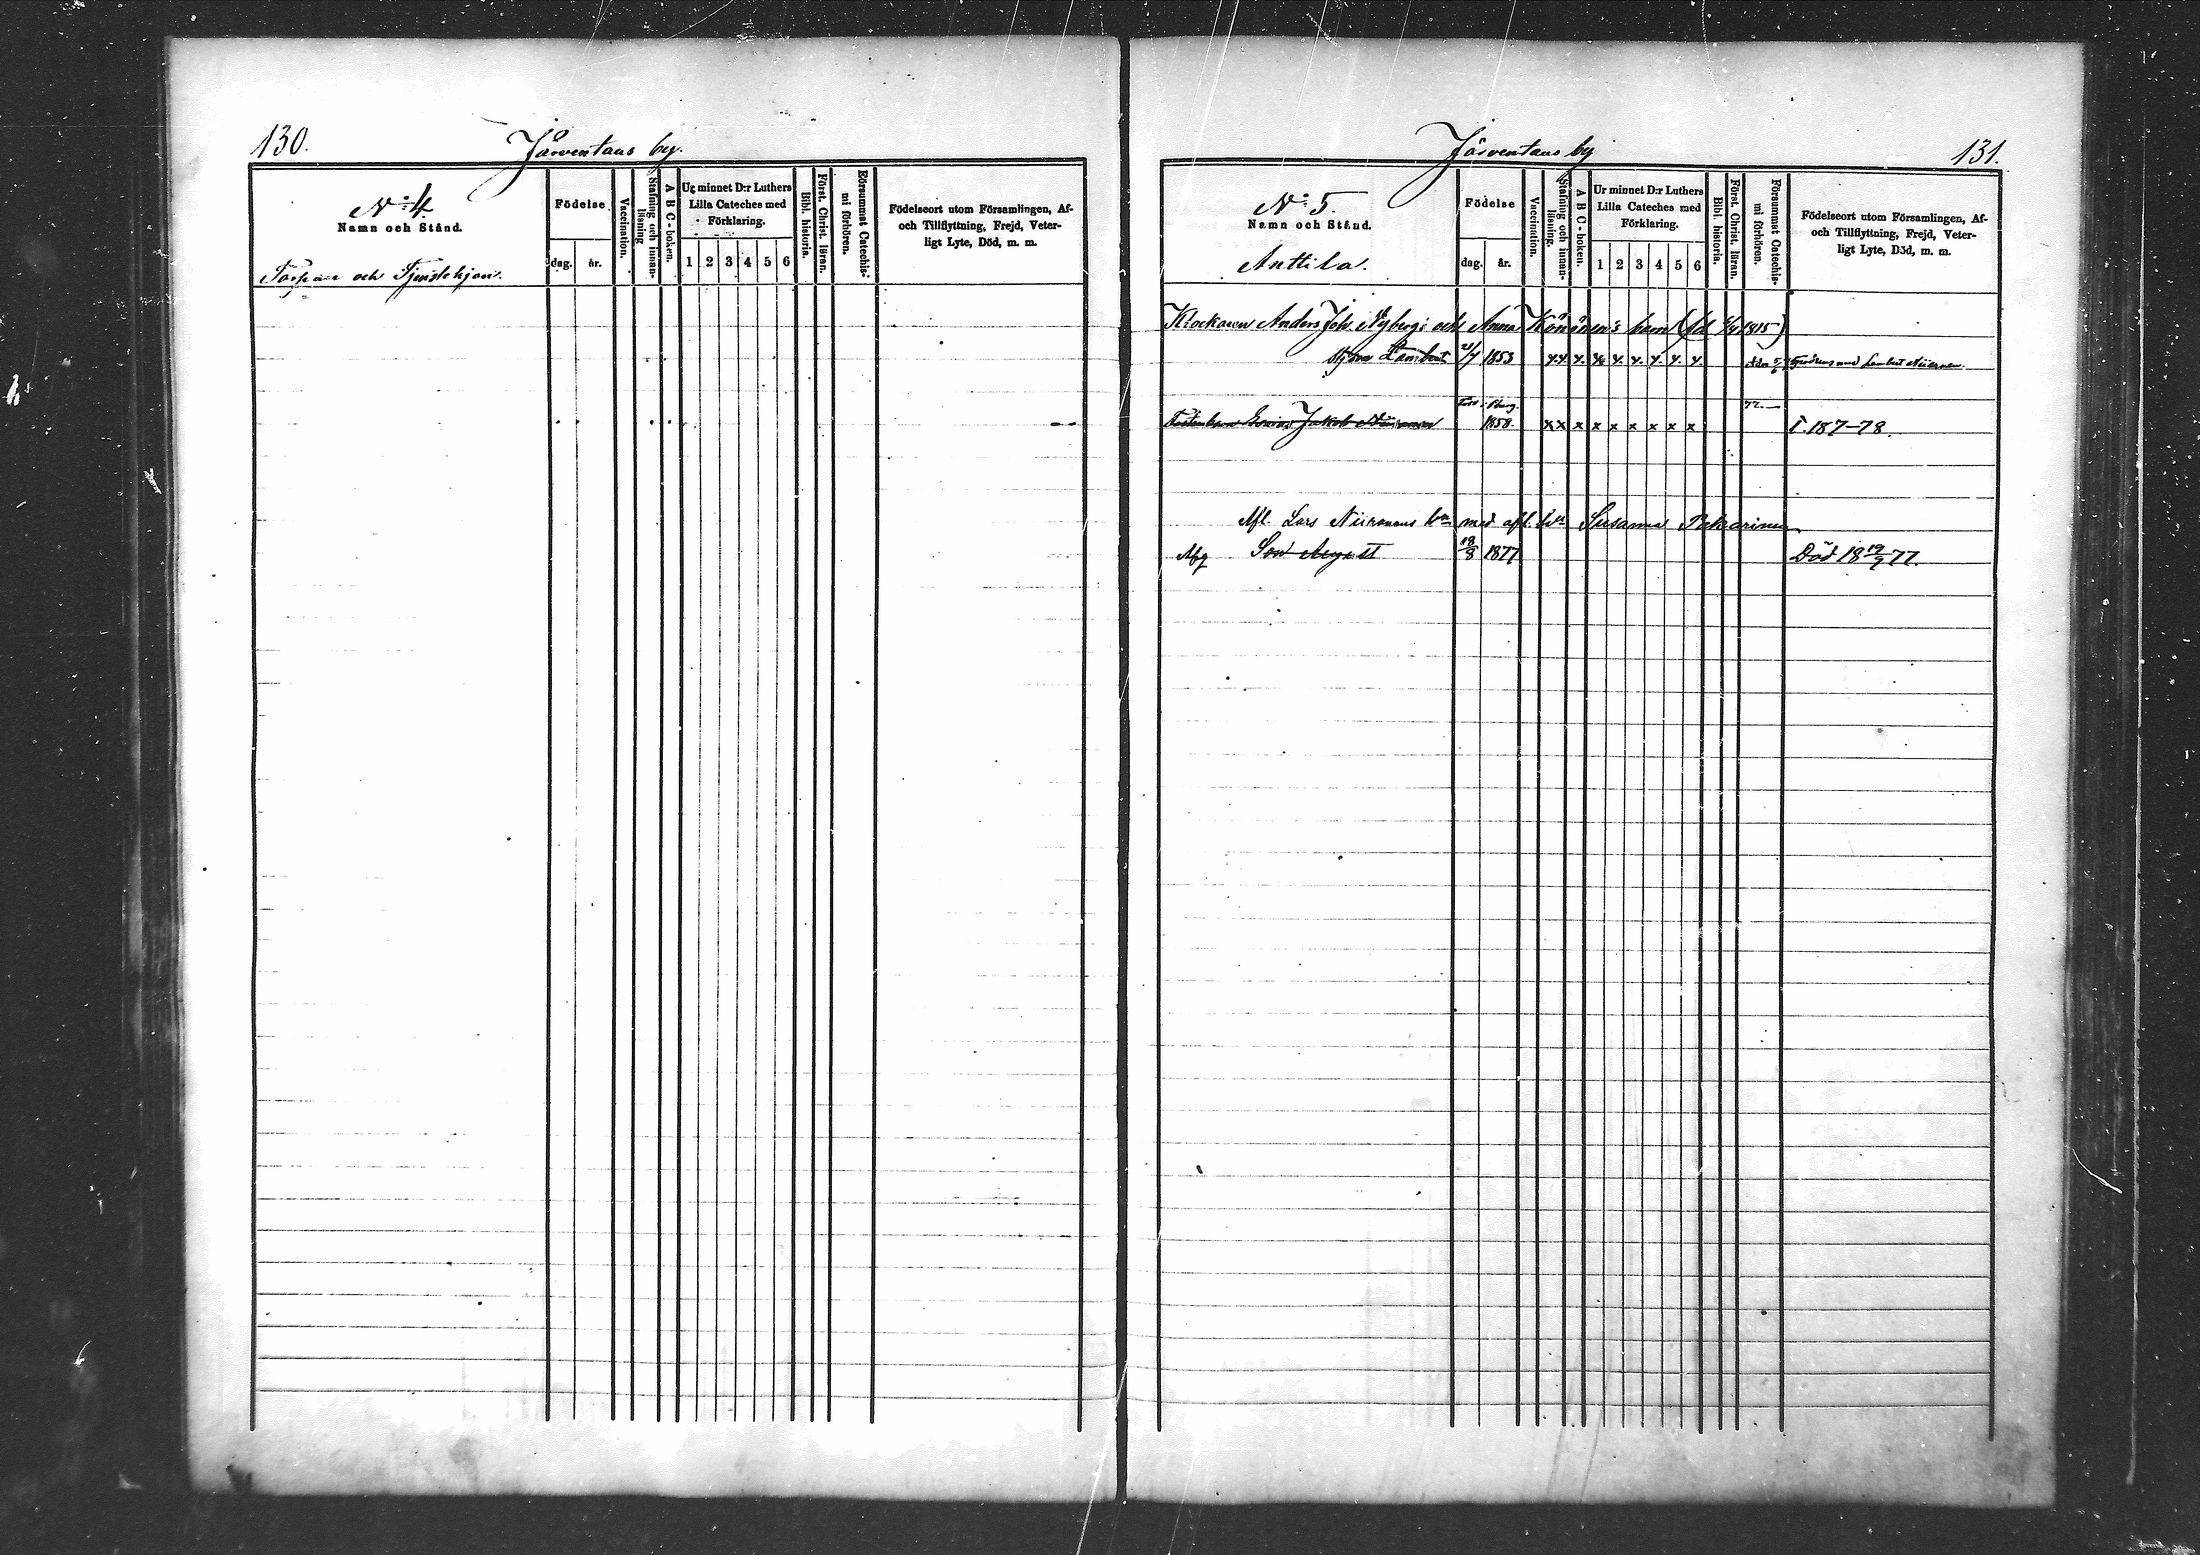 130.
Järventaus by.
N:o 4.
Namn och Stånd.
Födelse
dag. år.
Vaccination.
Stafning och innanläsning
A B C - boken.
Ur minnet D:r Luthers
Lilla Cateches med
Förklaring.
1 2 3 4 5 6
Bibl. historia.
Först. Christ. läran.
Försummat Catechismi förhören.
Födelseort utom Församlingen, Af-
och Tillflyttning, Frejd, Veter-
ligt Lyte, Död, m. m.
Torpare och Tjenstehjon.
Järventaus by
131.
N:o 5.
Namn och Stånd.
Anttila.
Födelse
dag. år.
Vaccination.
Stafning och innanläsning.
A B C - boken.
Ur minnet D:r Luthers
Lilla Cateches med
Förklaring.
1 2 3 4 5 6
Bibl. historia.
Först. Christ. läran.
Försummat Catechismi förhören.
Födelseort utom Församlingen, Af-
och Tillflyttning, Frejd, Veter-
ligt Lyte, Död, m. m.
Klockaren Anders Joh. Nybergs och Anna Könönens barn
1815)
Lambert 1853
med Lambert Niiranen.
Jakob Niiranen 1858. x x x x x x x x x 77. T. 187-78.
Afl. Lars Niiranens med afl. Susanna Pekarinen
Son August 18/8 1877 Död 18 19/9 77.